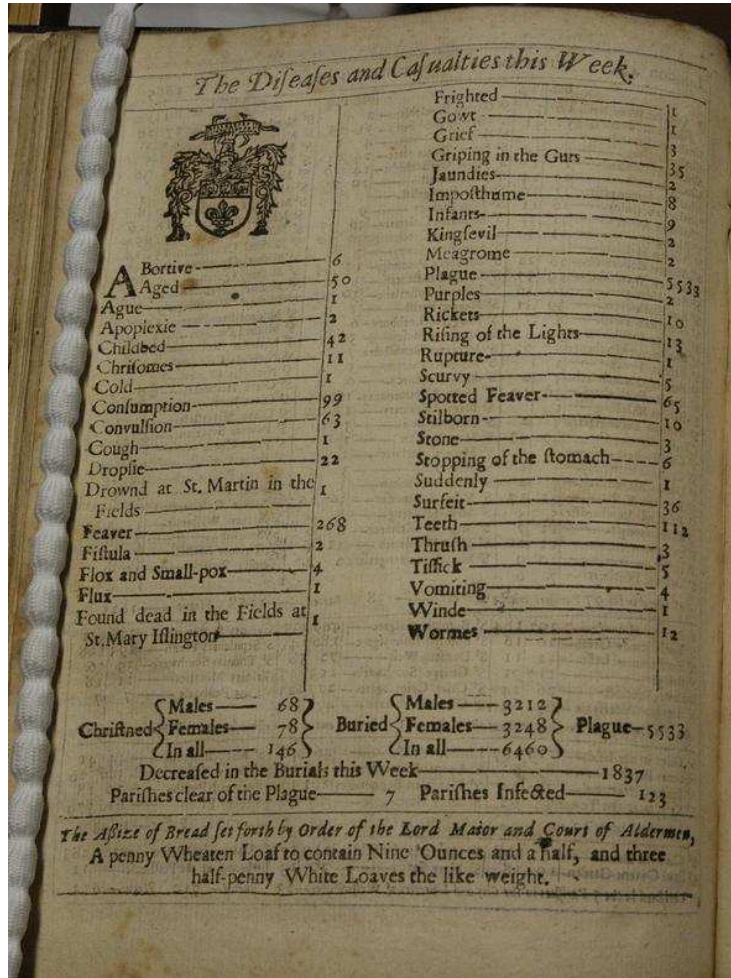 The Diſeaſes and Caſualties this Week.
ABortive 6
Aged 50
Ague 1
Apoplexie 2
Childbed 42
Chriſomes 11
Cold 1
Conſumption 99
Convulſion 63
Cough 1
Dropſie 22
Drownd at St. Martin in the 1
Fields
Feaver 268
Fiſtula 2
Flox and Small-pox 4
Flux 1
Found dead in the Fields at 1
St. Mary Iſlington
Frighted 1
Gowt 1
Grief 3
Griping in the Guts 35
Jaundies 2
Impoſthume 8
Infants 9
Kingſevil 2
Meagrome 2
Plague 5533
Purples 2
Rickets 10
Riſing of the Lights 13
Rupture 1
Scurvy 5
Spotted Feaver 65
Stilborn 10
Stone 3
Stopping of the ſtomach 6
Suddenly 1
Surfeit 36
Teeth 112
Thruſh 3
Tiſſick 5
Vomiting 4
Winde 1
Wormes 12
Males 68 Males 3212
Chriſtned Females 78 Buried Females 3248 Plague 5533
In all 146 In all 6460
Decreaſed in the Burials this Week 1837
Pariſhes clear of the Plague 7 Pariſhes Infected 123
The Aſſize of Bread ſet forth by Order of the Lord Maior and Court of Aldermen,
A penny Wheaten Loaf to contain Nine Ounces and a half, and three
half-penny White Loaves the like weight.